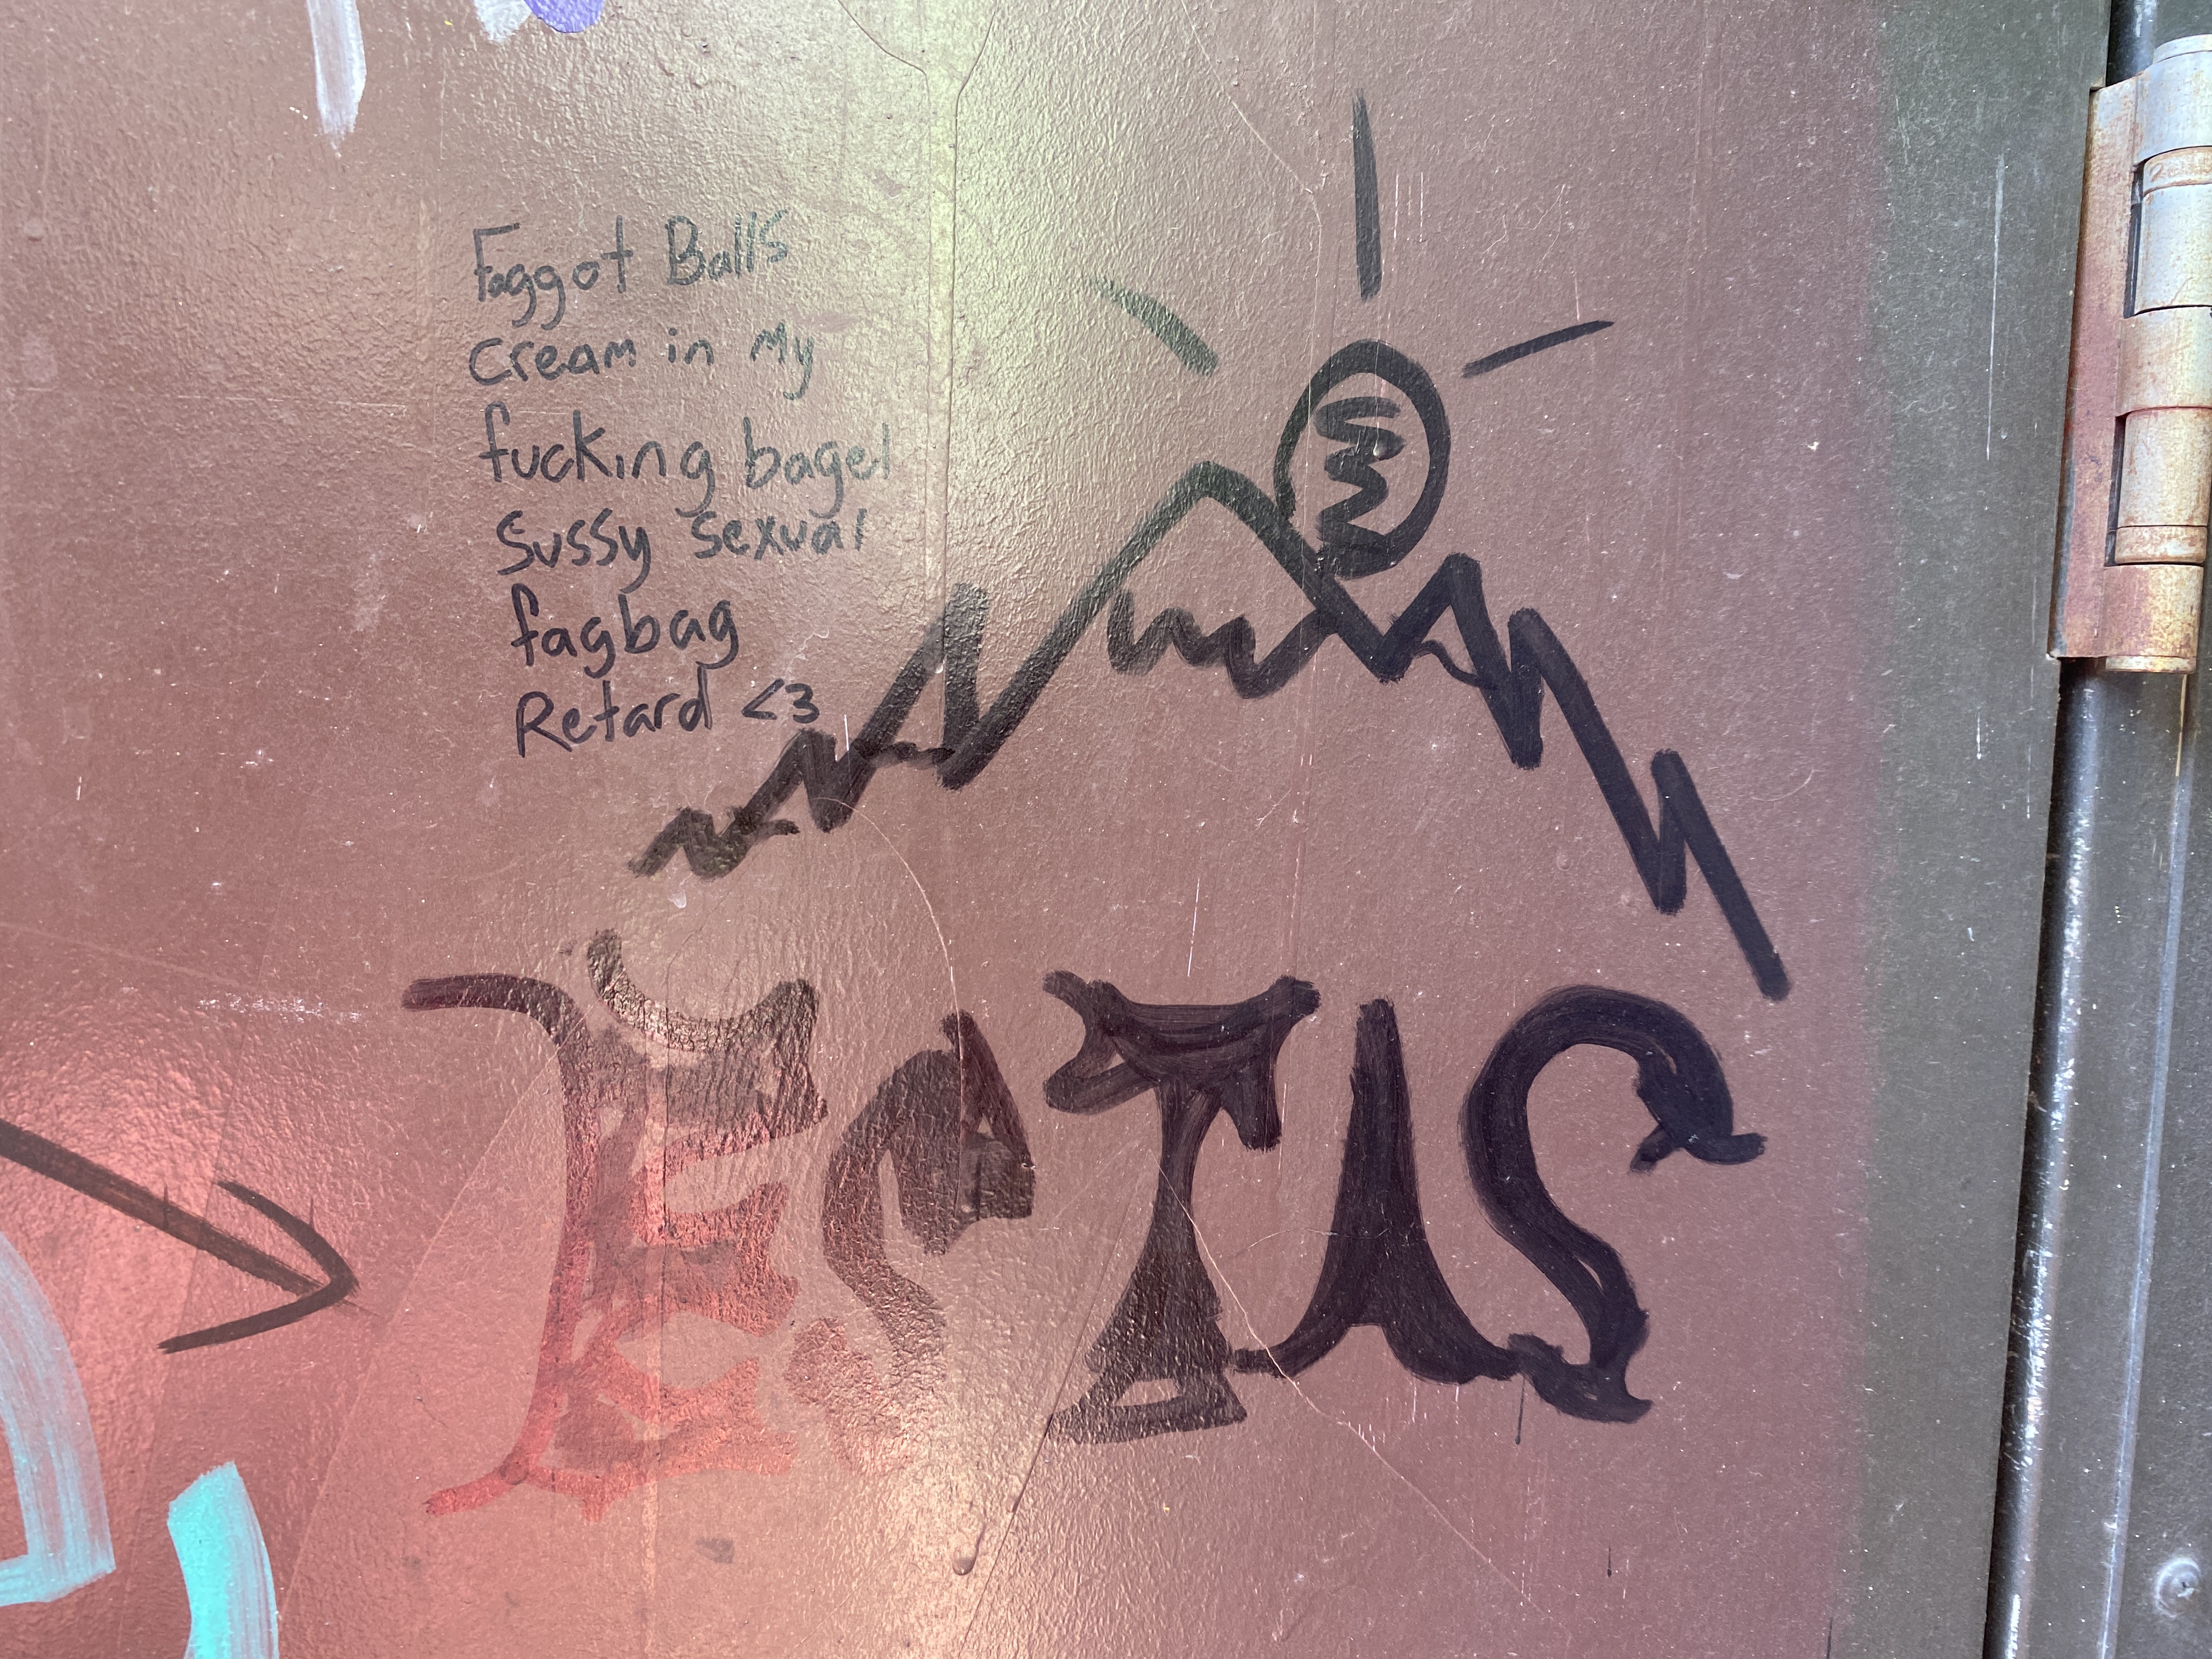 Faggot Balls
cream in My
fucking bagel
Sussy sexual
fagbag
Retard <3